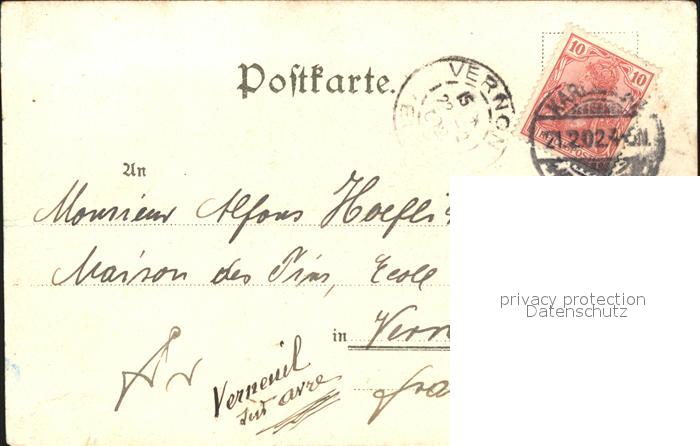 Postkarte.
VERNON
10 10
21.2.02.4-5N.
An
Monsieur Alfons
Maison des Pins, Ecole
in Vern
Verneuil
sur avre
fra
privacy protection
Datenschutz